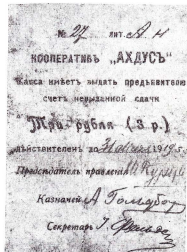 № 27 лит. А н
КООПЕРАТИВЪ „АХДУСЪ"
Касса имѣетъ выдать предъявителю
счетъ невыданной сдачи
Три рубля (3 р.)
дѣйствителенъ до 1919 г.
Предсѣдатель правленія
Казначей А
Секретарь